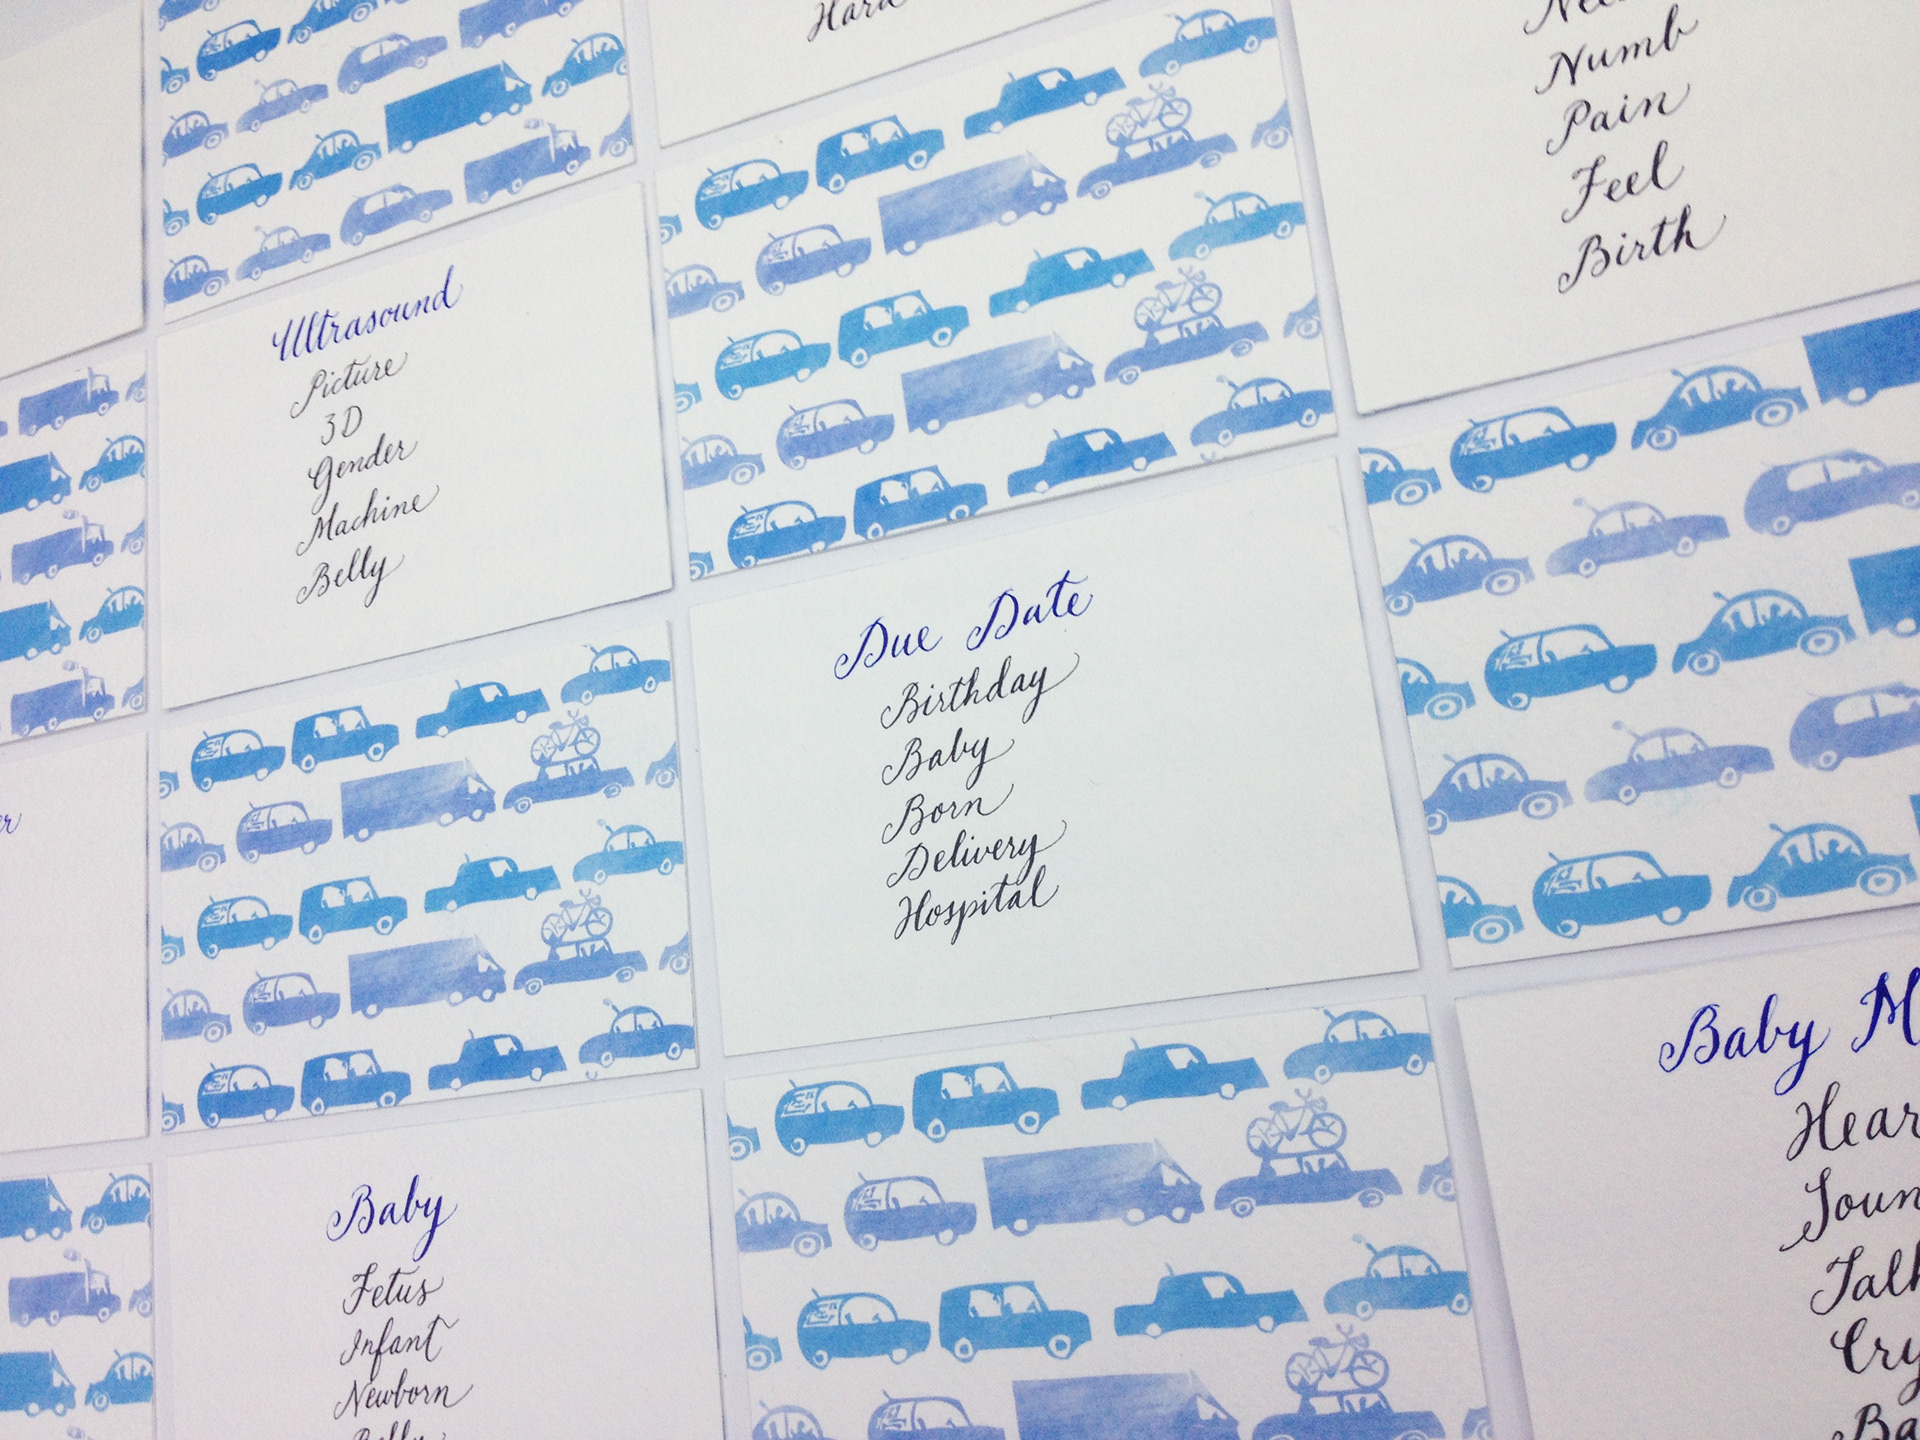 Hard
Numb
Pain
Feel
Birth
Ultrasound
Picture
3D
Gender
Machine
Belly
Due Date
Birthday
Baby
Born
Delivery
Hospital
Baby
Fetus
Infant
Newborn
Belly
Baby M
Hear
Soun
Talk
Cry
Ba